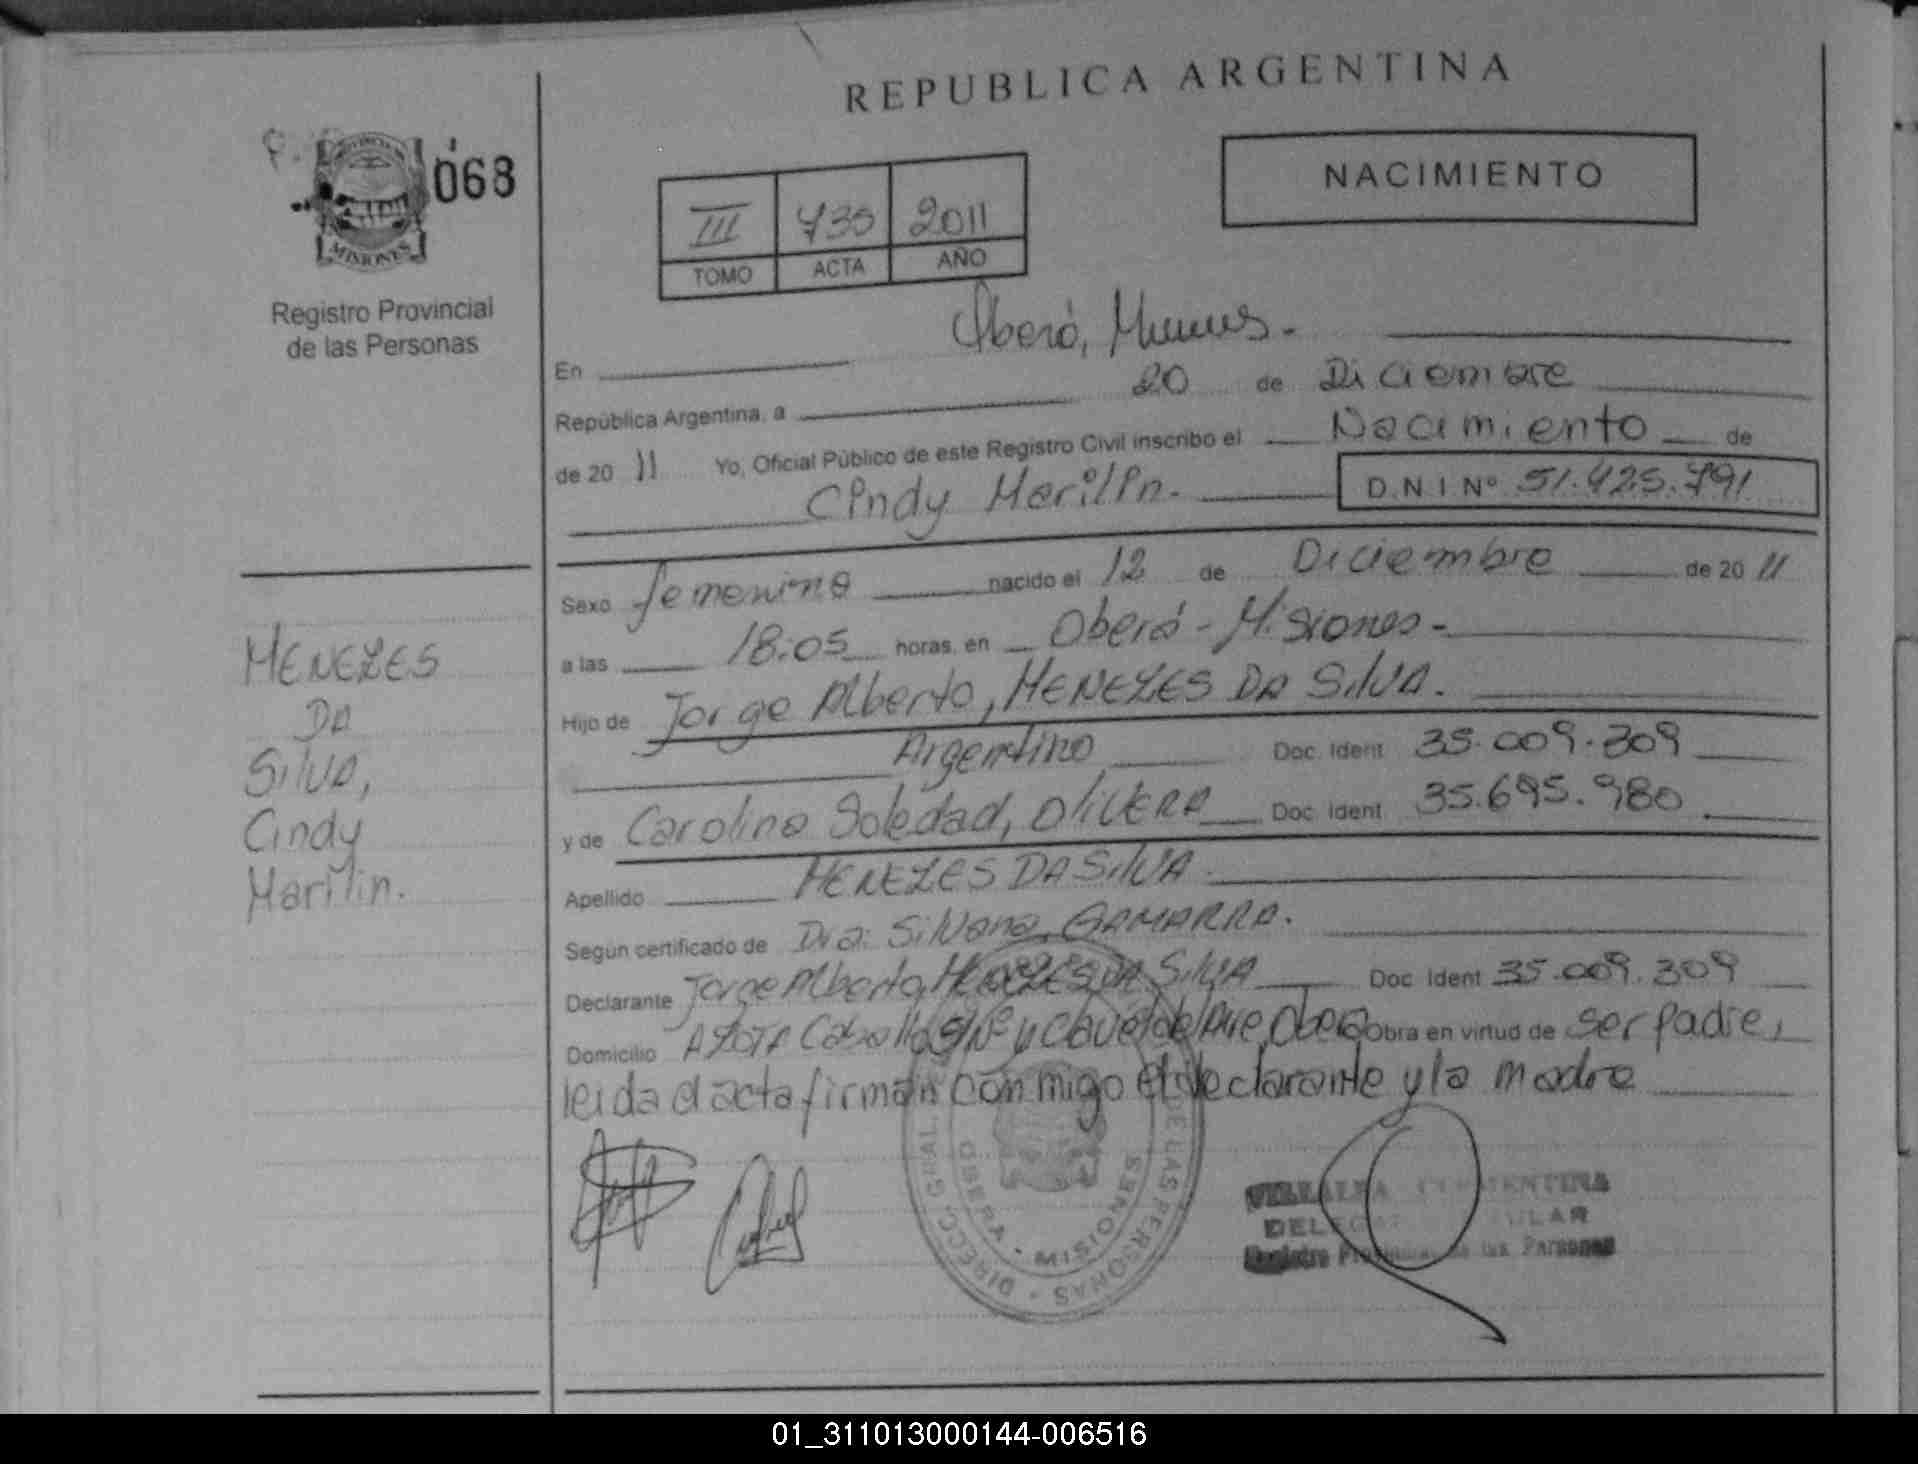 REPUBLICA ARGENTINA
NACIMIENTO
068
MISIONES
Registro Provincial
de las Personas
III 735 2011
TOMO ACTA AÑO
En Oberá,
República Argentina, a 20 de Diciembre
de 20 11 Yo, Oficial Público de este Registro Civil inscribo el Nacimiento de
Cindy Marilin.
D.N.I Nº 51.425.791
Sexo femenino nacido el 12 de Diciembre de 20 11
a las 18:05 horas, en Oberá - Misiones -
Hijo de Jorge Alberto, MENEZES DA SILVA.
Argentino Doc. Ident 35.009.309
y de Carolina Soledad, OLIVERA Doc. Ident 35.695.980
Apellido MENEZES DA SILVA
Según certificado de Dra: Silvana, GAMARRA.
Declarante Jorge Alberto, MENEZES DA SILVA Doc Ident 35.009.309
Domicilio s/Nº y Clavel del Aire, Oberá Obra en virtud de ser padre,
leida el acta firman conmigo el declarante y la madre
MENEZES
DA
SILVA,
Cindy
Marilin.
DIRECC. GRAL. DE LAS PERSONAS
OBERA - MISIONES
Registro de las Personas
01_311013000144-006516